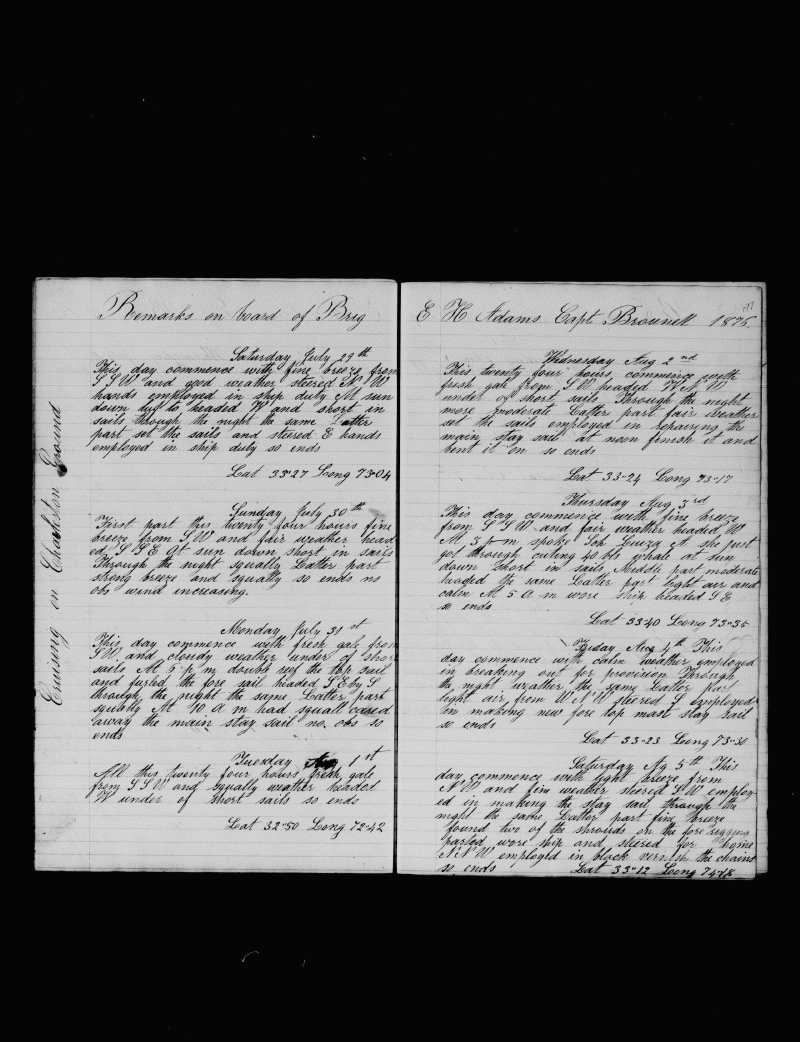 Remarks on board of Brig
Saturday July 29th
This day commence with fine breeze from
S S W and good weather steered N W
hands employed in ship duty At sun
down duf to headed W and short in
sails through the night the same Latter
part set the sails and steered E hands
employed in ship duty so ends
Lat 33-27 Long 73-04
Sunday July 30th
First part this twenty four hours fine
breeze from S W and fair weather head
ed S S E At sun down short in sails
Through the night squally Latter part
strong breeze and squally so ends no
obs wind increasing.
Monday July 31st
This day commence with fresh gale from
S W and cloudy weather under of short
sails At 5 p m double reef the top sail
and furled the fore sail headed S E by S
through the night the same Latter part
squaly At 10 A m had squall
away the main stay sail no obs so
ends
Tuesday Aug 1st
All this twenty four hours fresh gale
from S S W and squally weather headed
W under of short sails so ends
Lat 32-50 Long 72-42
Cruising on Charlston Ground
E H Adams Capt Brownell 1876.
Wednesday Aug 2nd
This twenty four hours commence with
fresh gale from S W headed W N W
under of short sails Through the night
more moderate Latter part fair weather
set the sails employed in repairing the
main stay sail at noon finish it and
bent it on so ends
Lat 33-24 Long 73-17
Thursday Aug 3rd
This day commence with fine breeze
from S S W and fair weather headed W
At 3 p m spoke Sch A she just
got through cuting 40 bls whale at sun
down short in sails Middle part moderate
headed the same Latter part light air and
calm At 5 A m wore ship headed S E
so ends
Lat 33 40 Long 73-35
Friday Aug 4th This
day commence with calm weather employed
in breaking out for provision Through
the night weather the same Latter part
light air from W N W steered S employed
in making new fore top mast stay sail
so ends
Lat 33-23 Long 73-30
Saturday Ag 5th This
day commence with light breeze from
N W and fine weather steered S W employ-
ed in making the stay sail through the
night the same Latter part fine breeze
found two of the shrouds on the fore rigging
parted wore ship and steered for home
N N W employed in black vernish the chains
so ends Lat 33-12 Long 74-18